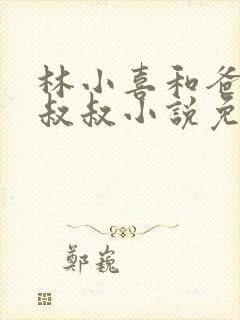 林小喜和爸
叔叔小説免
鄭巍